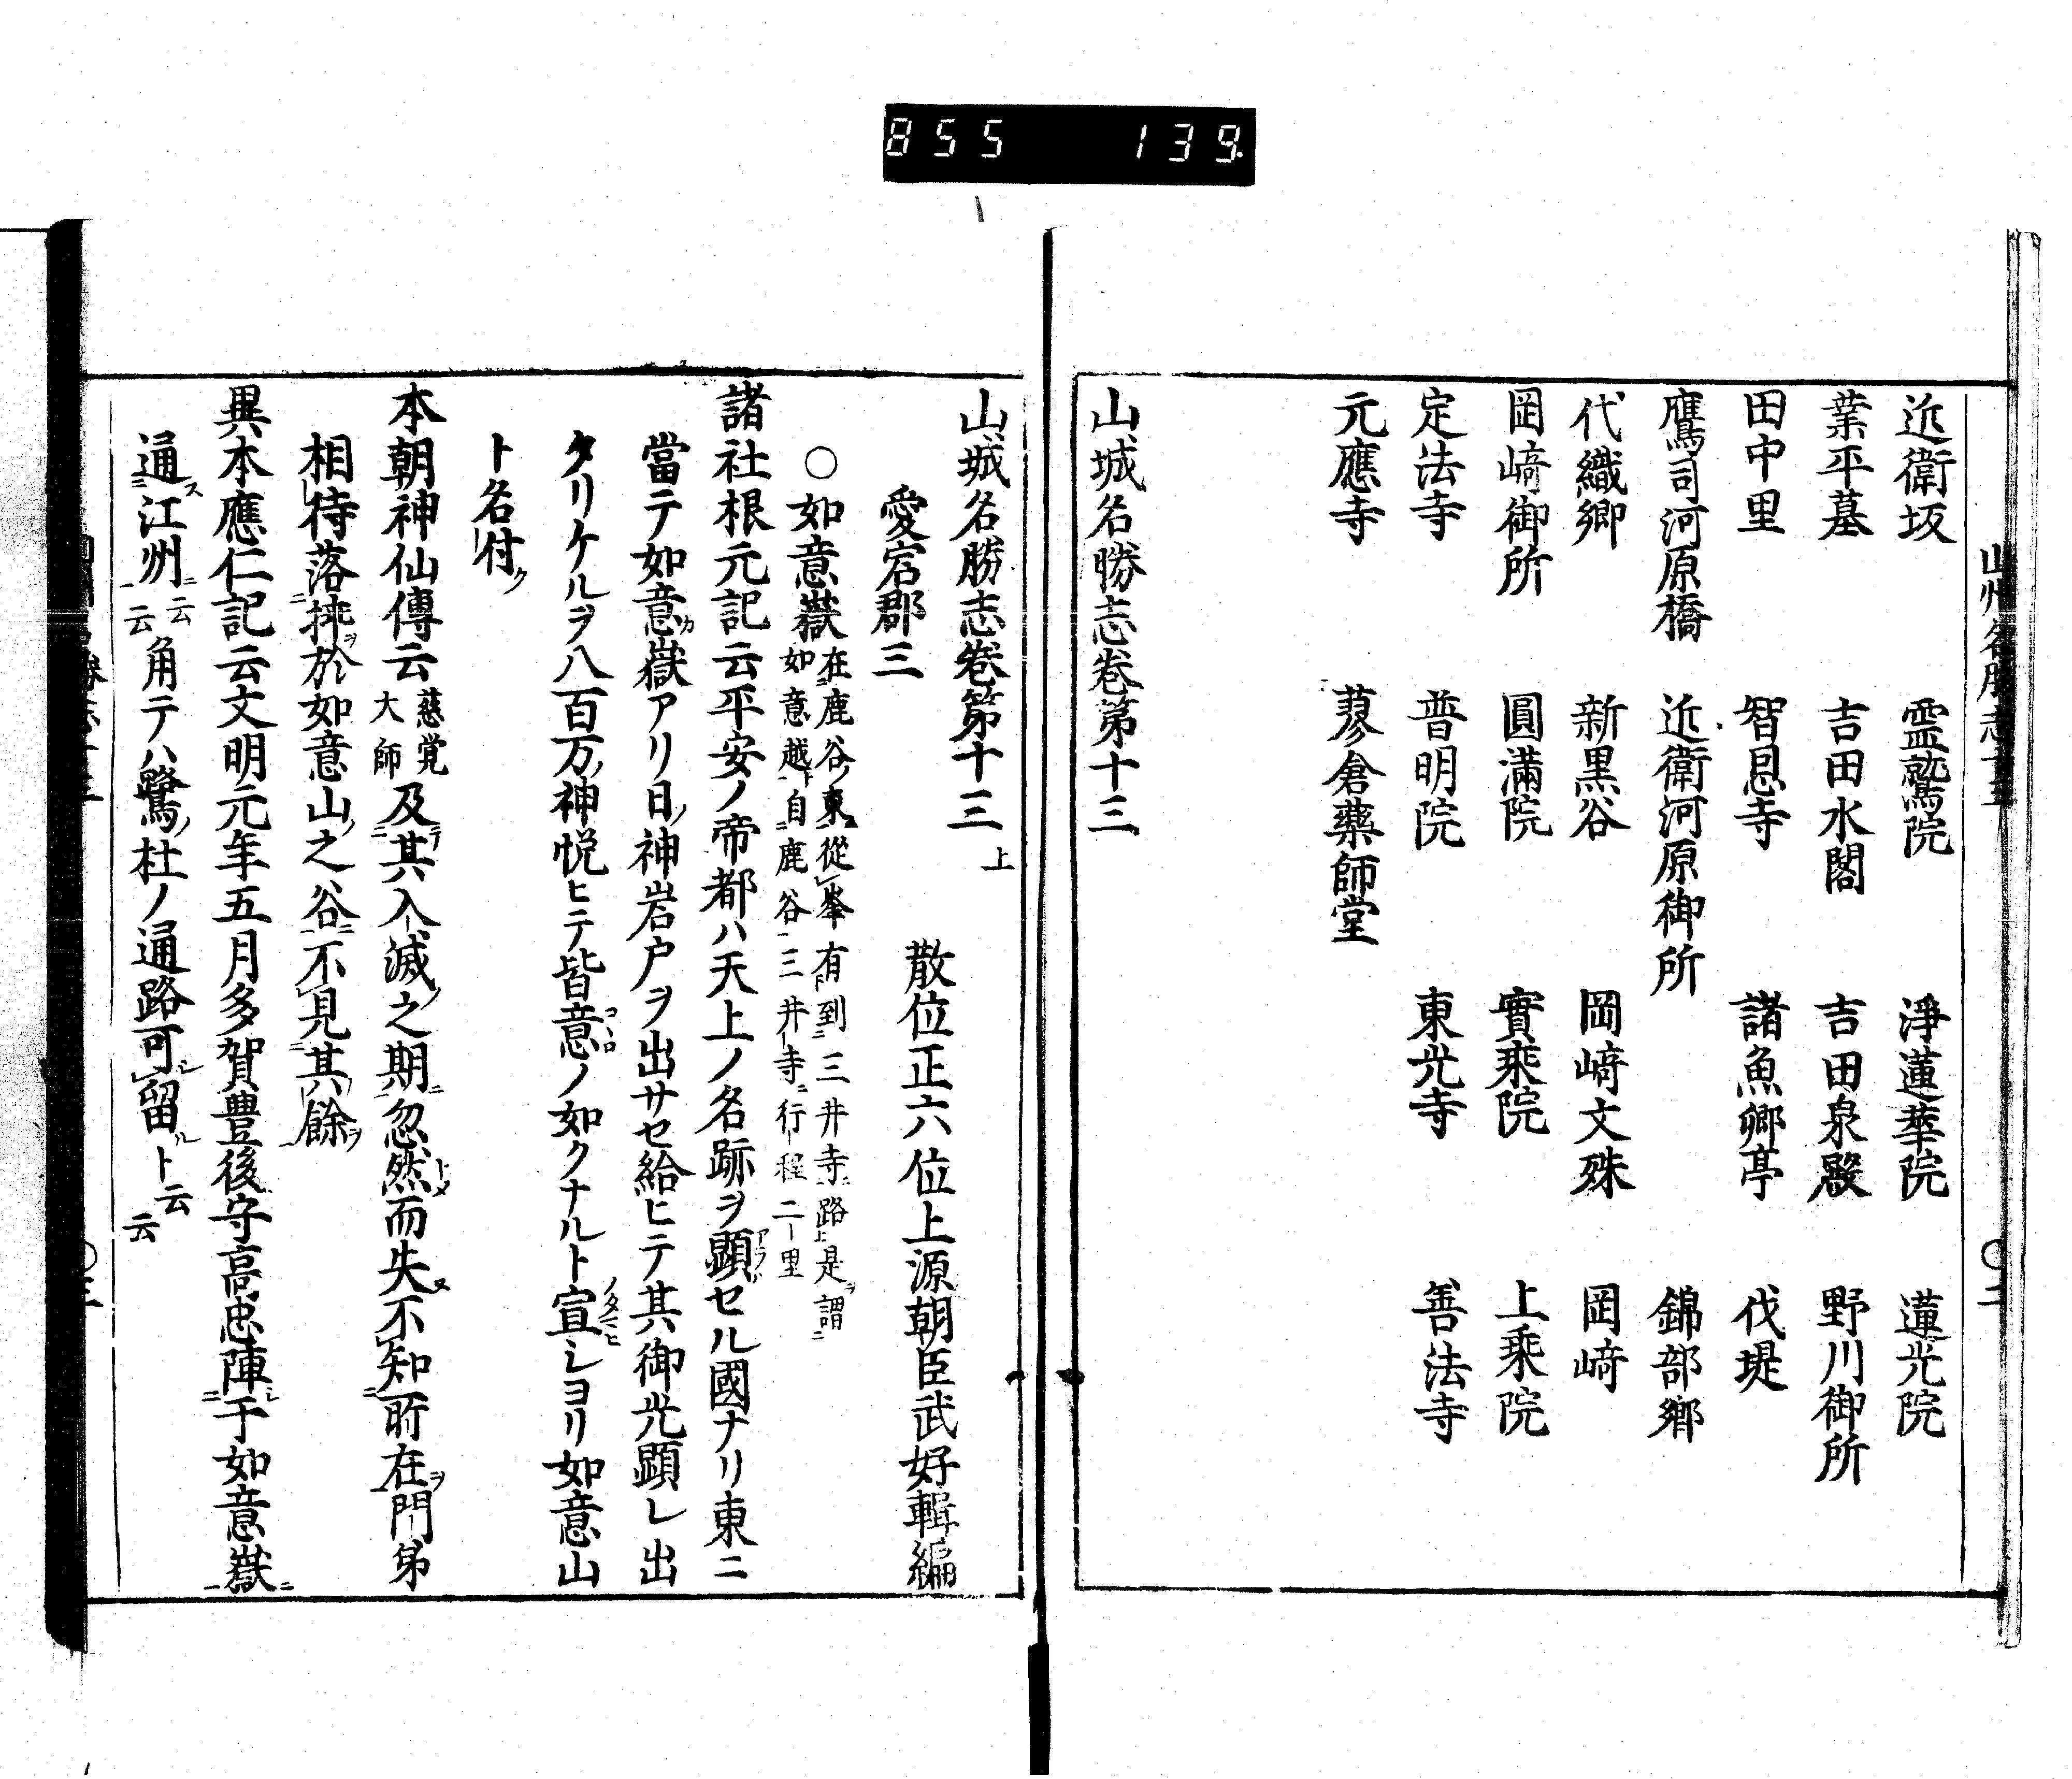 855 139
近衛坂 霊鷲院 淨蓮華院 蓮光院
業平墓 吉田水閣 吉田泉殿 野川御所
田中里 智恩寺 諸魚卿亭 伐堤
鷹司河原橋 近衛河原御所 錦部郷
代織郷 新黒谷 岡﨑文殊 岡﨑
岡﨑御所 圓滿院 實乘院 上乘院
定法寺 普明院 東光寺 善法寺
元應寺 蓼倉藥師堂
山城名勝志巻第十三
山城名勝志巻第十三上
愛宕郡三 散位正六位上源朝臣武好輯編
○如意嶽 在鹿谷ノ東從峯有到三井寺路是謂
如意越ト自鹿谷三井寺ニ行程二里
諸社根元記云平安ノ帝都ハ天上ノ名跡ヲ顕セル國ナリ東ニ
當テ如意カ嶽アリ日ノ神岩戸ヲ出サセ給ヒテ其御光顕レ出
タリケルヲ八百万ノ神悦ヒテ皆意ノ如クナルト宣シヨリ如意山
ト名付ク
本朝神仙傳云慈覚大師及其入滅之期忽然而失不知所在門弟
相待落排於如意山之谷不見其餘
異本應仁記云文明元年五月多賀豊後守高忠陣于如意嶽
通江州云云角テハ鷺ノ杜ノ通路可留ト云云